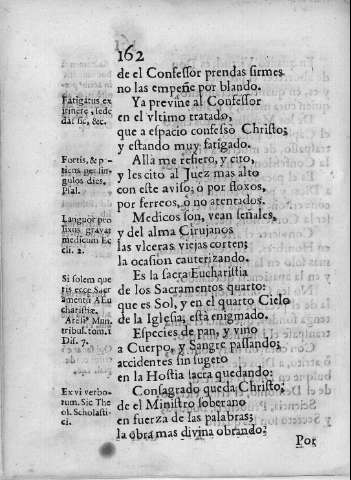 162
de el Confessor prendas firmes
no las empeñe por blando.
Fatigatus ex
itinere, sede
dat sic, &c.
Ya previne al Confessor
en el vltimo tratado,
que a espacio confesò Christo;
y estando muy fatigado.
Fortis, & p-
tiens per sin-
gulos dies.
Psal.
Allà me refiero, y cito,
y les cito al Juez mas alto
con este aviso; ò por floxos,
por ferreos, ò no atentados.
Languor pro
lixus gravat
medicum Ec
cli. 2.
Medicos son, vean señales,
y del alma Cirujanos
las vlceras viejas corten;
la ocasion cauterizando.
Si solem que
ris ecce Sacr
amentũ A Eu
charistiæ.
Aresi⁹ Mun.
tribul. tom. 1
Dis. 7.
Es la sacra Eucharistia
de los Sacramentos quarto:
que es Sol, y en el quarto Cielo
de la Iglesia, està enigmado.
Especies de pan, y vino
a Cuerpo, y Sangre passando;
accidentes sin sugeto
en la Hostia sacra quedando:
Ex vi verbo-
rum. Sic The
ol. Scholasti-
ci.
Consagrado queda Christo;
de el Ministro soberano
en fuerza de las palabras;
la obra mas divina obrando;
Por